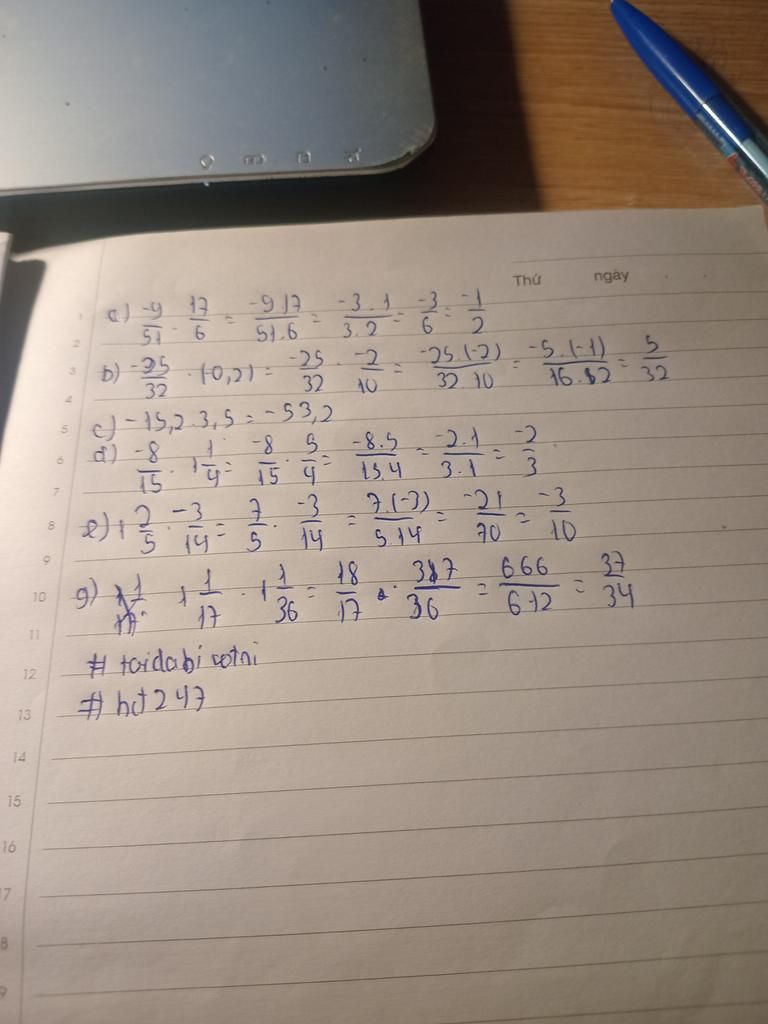 Thứ ngày
a) -9/51 . 17/6 = -9.17/51.6 = -3.1/3.2 = -3/6 = -1/2
b) -25/32 . (-0,2) = -25/32 . -2/10 = -25.(-2)/32.10 = -5.(-1)/16.2 = 5/32
c) -15,2.3,5 = -53,2
d) -8/15 . 1 1/4 = -8/15 . 5/4 = -8.5/15.4 = -2.1/3.1 = -2/3
e) 1 2/5 . -3/14 = 7/5 . -3/14 = 7.(-3)/5.14 = -21/70 = -3/10
g) 1 1/17 . 1 1/36 = 18/17 . 37/36 = 666/612 = 37/34
# toidabi
# hd247
1
2
3
4
5
6
7
8
9
10
11
12
13
14
15
16
7
8
9